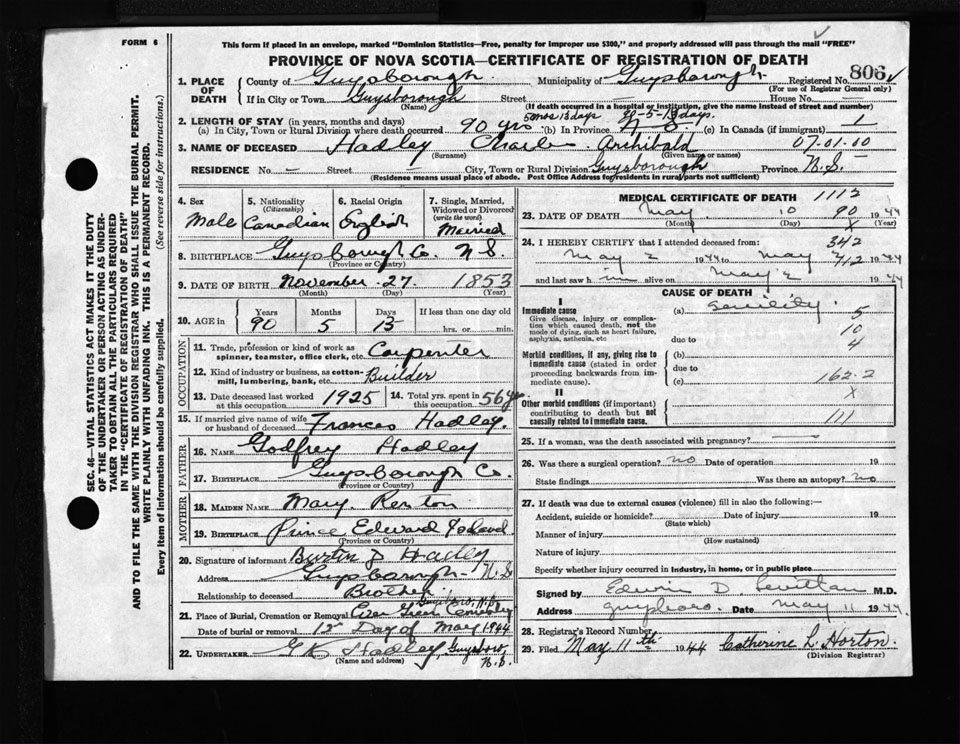 FORM 6
This form if placed in an envelope, marked "Dominion Statistics—Free, penalty for improper use $300," and properly addressed will pass through the mail "FREE"
PROVINCE OF NOVA SCOTIA—CERTIFICATE OF REGISTRATION OF DEATH
1. PLACE OF DEATH County of Guysborough Municipality of Guysborough Registered No. 806
(For use of Registrar General only)
If in City or Town Guysborough Street — House No. —
(Name) (If death occurred in a hospital or institution, give the name instead of street and number)
2. LENGTH OF STAY (in years, months and days) 5 mos 13 days 90-5-13 days.
(a) In City, Town or Rural Division where death occurred 90 yrs (b) In Province N.S. (c) In Canada (if immigrant)
3. NAME OF DECEASED Hadley Charles Archibald 07.01.00
(Surname) (Given name or names)
RESIDENCE No. — Street City, Town or Rural Division Guysborough Province N.S.
(Residence means usual place of abode. Post Office Address for residents in rural parts not sufficient)
4. Sex Male
5. Nationality (Citizenship) Canadian
6. Racial Origin English
7. Single, Married, Widowed or Divorced (write the word) Married
8. BIRTHPLACE Guysborough Co. N.S.
(Province or Country)
9. DATE OF BIRTH November 27 1853
(Month) (Day) (Year)
10. AGE in Years 90 Months 5 Days 13 If less than one day old
hrs. or min.
OCCUPATION
11. Trade, profession or kind of work as spinner, teamster, office clerk, etc. Carpenter
12. Kind of industry or business, as cotton-mill, lumbering, bank, etc. Builder
13. Date deceased last worked at this occupation 1925 14. Total yrs. spent in this occupation 56 y
15. If married give name of wife or husband of deceased Frances Hadley.
FATHER
16. NAME Godfrey Hadley
17. BIRTHPLACE Guysborough Co.
(Province or Country)
MOTHER
18. MAIDEN NAME Mary Renton
19. BIRTHPLACE Prince Edward Island
(Province or Country)
20. Signature of informant Burtin D Hadley
Address Guysborough N.S.
Relationship to deceased Brother
21. Place of Burial, Cremation or Removal Ever Green Cemetery
Date of burial or removal 12 Day of May 1944
22. UNDERTAKER G K Hadley Guysboro, N.S.
(Name and address)
MEDICAL CERTIFICATE OF DEATH 1112
23. DATE OF DEATH May 10 90 1944
(Month) (Day) X (Year)
24. I HEREBY CERTIFY that I attended deceased from: 342
May 2 1944 to May 2 412 1944
and last saw h im alive on May 2 1944
CAUSE OF DEATH
I
Immediate cause
Give disease, injury or complication which caused death, not the mode of dying, such as heart failure, asphyxia, asthenia, etc
(a) Senility. 5
due to 10
4
Morbid conditions, if any, giving rise to immediate cause (stated in order proceeding backwards from immediate cause).
(b)
due to
(c) 162-2
II X
Other morbid conditions (if important) contributing to death but not causally related to immediate cause.
111
25. If a woman, was the death associated with pregnancy? —
26. Was there a surgical operation? no Date of operation 19
State findings Was there an autopsy? no
27. If death was due to external causes (violence) fill in also the following:—
Accident, suicide or homicide? Date of injury 19
(State which)
Manner of injury
(How sustained)
Nature of injury
Specify whether injury occurred in industry, in home, or in public place
Signed by Edwin D M.D.
Address guysboro. Date May 11 1944.
28. Registrar's Record Number
29. Filed May 11th 1944 Catherine L. Horton.
(Division Registrar)
SEC. 46—VITAL STATISTICS ACT MAKES IT THE DUTY
OF THE UNDERTAKER OR PERSON ACTING AS UNDER-
TAKER TO OBTAIN ALL THE PARTICULARS REQUIRED
IN THE "CERTIFICATE OF REGISTRATION OF DEATH"
AND TO FILE THE SAME WITH THE DIVISION REGISTRAR WHO SHALL ISSUE THE BURIAL PERMIT.
WRITE PLAINLY WITH UNFADING INK. THIS IS A PERMANENT RECORD.
Every item of information should be carefully supplied. (See reverse side for instructions.)